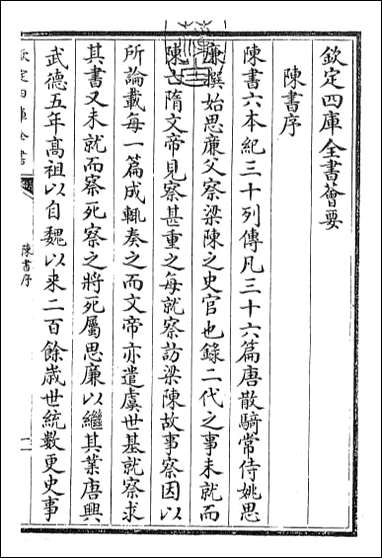 欽定四庫全書薈要
陳書序
陳書六本紀三十列傳凡三十六篇唐散騎常侍姚思
廉撰始思廉父察梁陳之史官也錄二代之事未就而
陳亡隋文帝見察甚重之每就察訪梁陳故事察因以
所論載每一篇成輒奏之而文帝亦遣虞世基就察求
其書又未就而察死察之將死屬思廉以繼其業唐興
武德五年髙祖以自魏以來二百餘歲世統數更史事
欽定四庫全書
陳書序
一